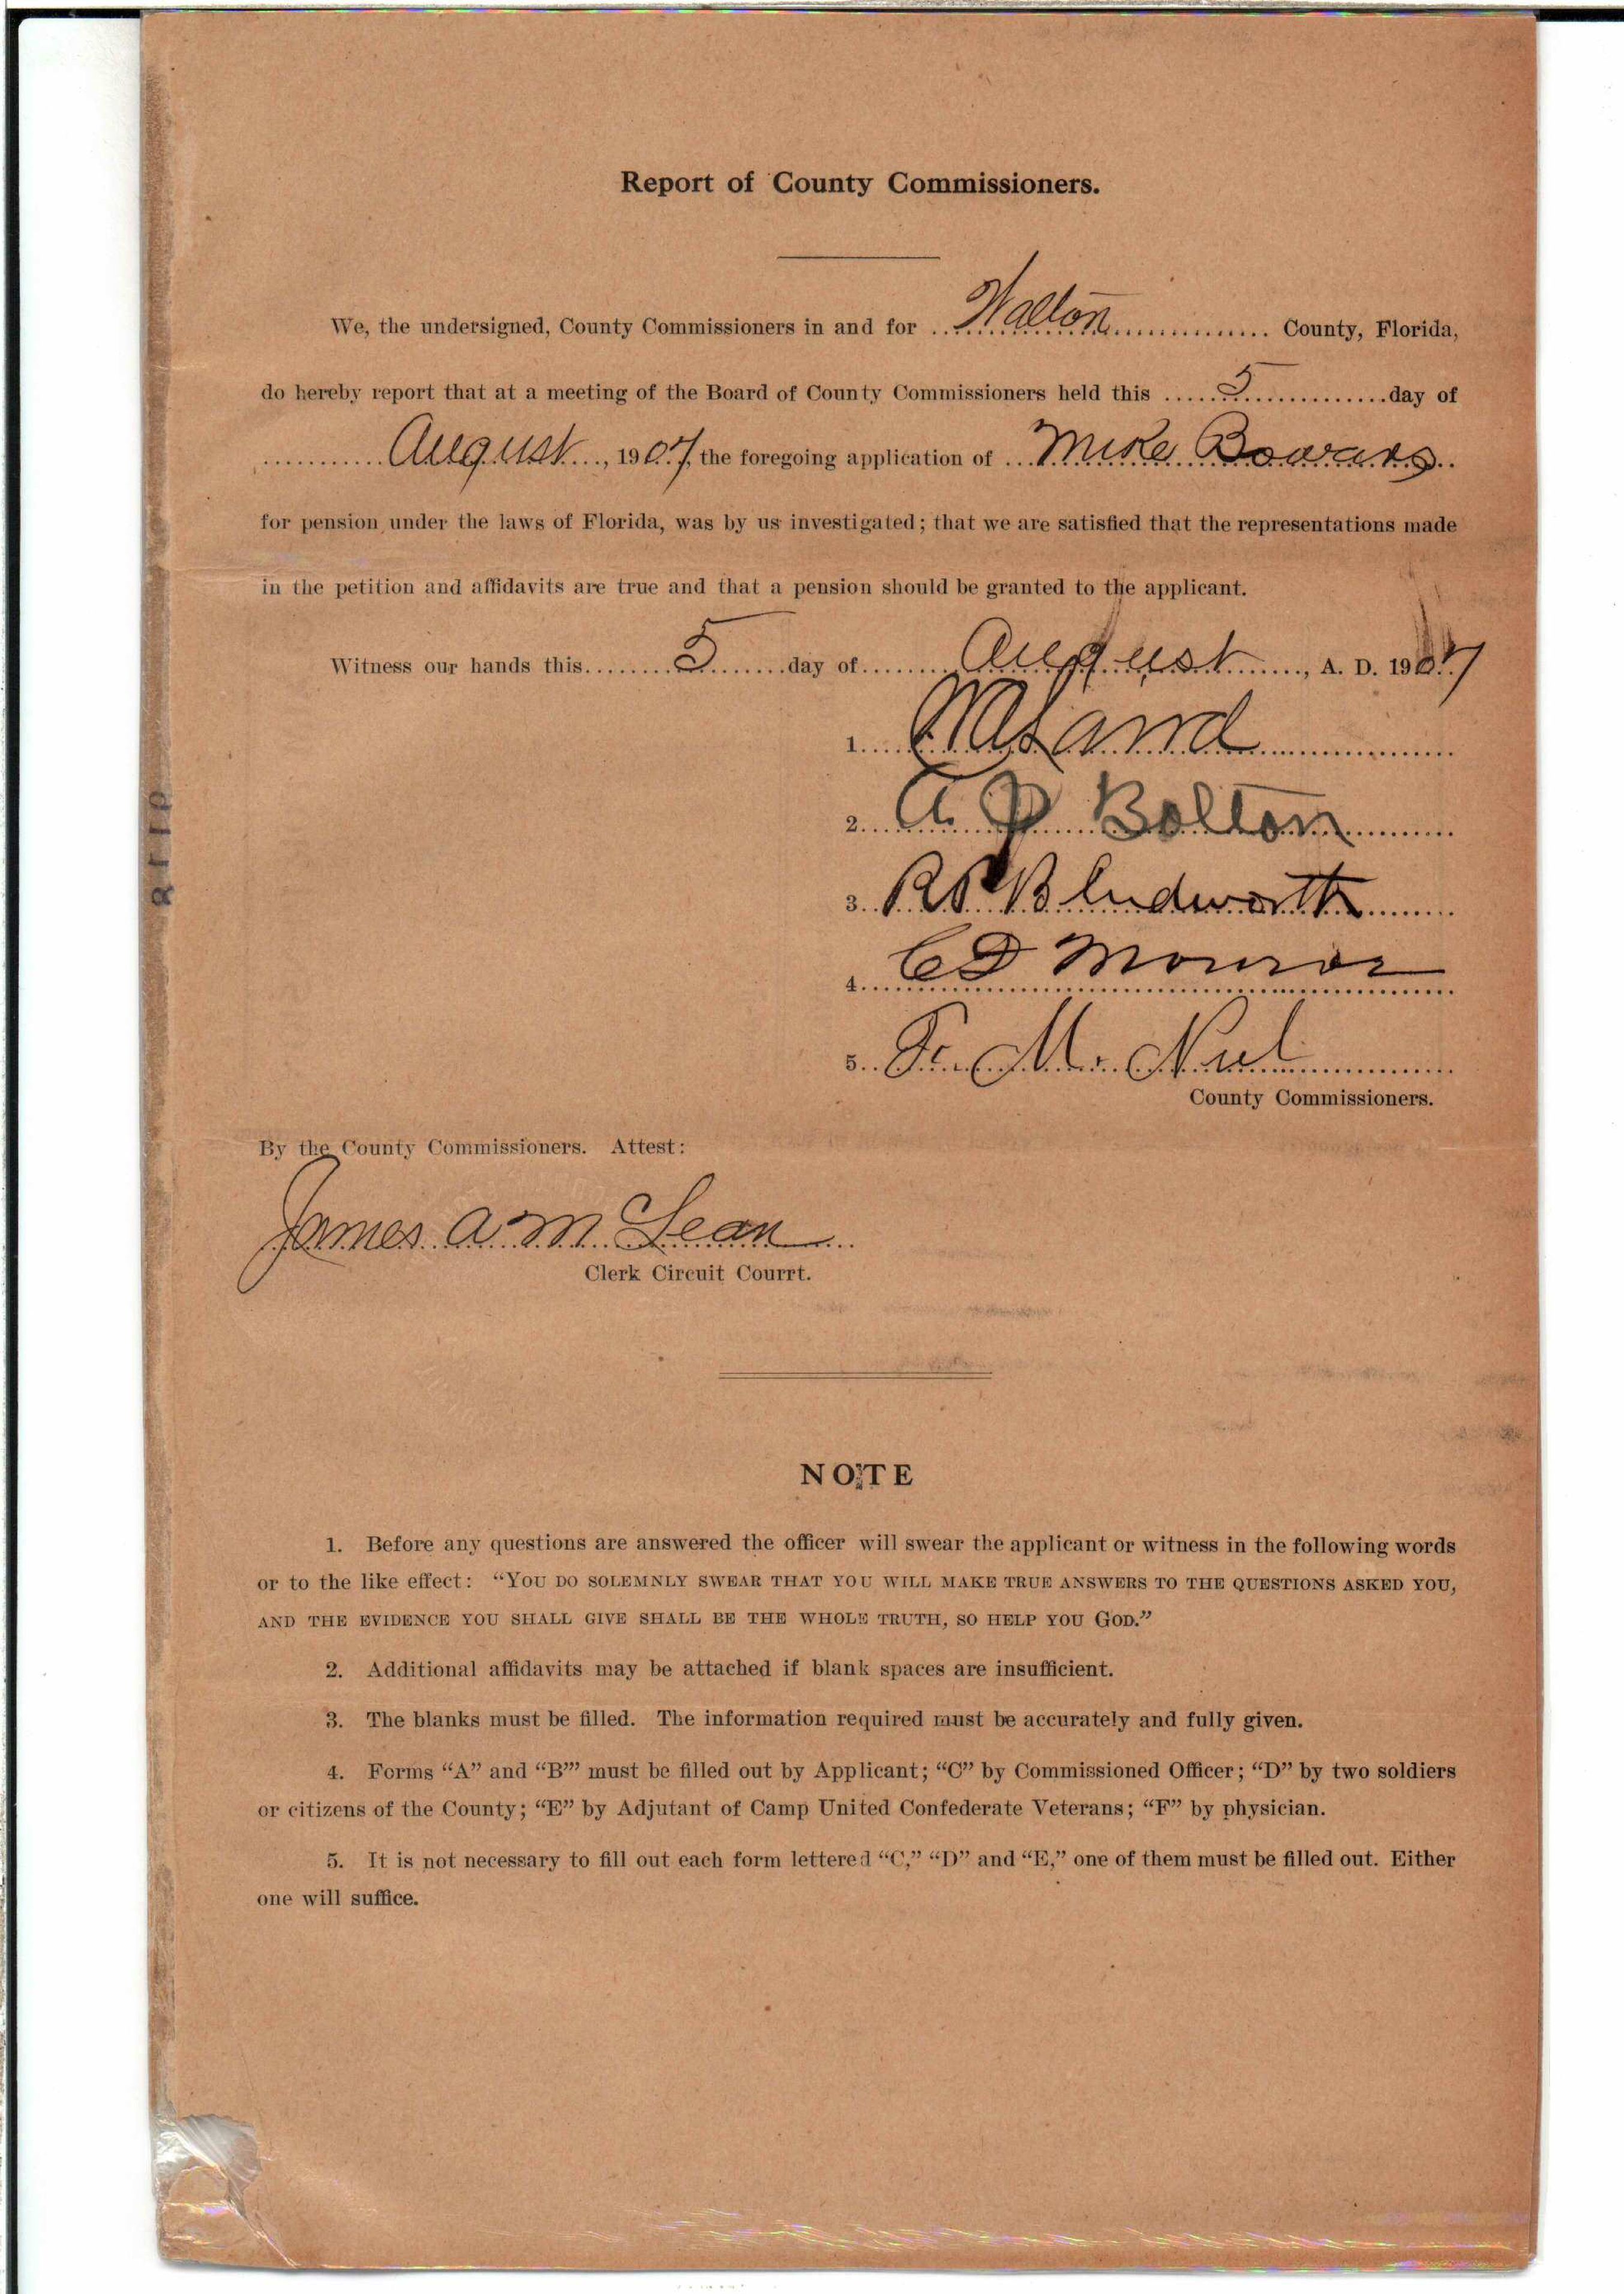 Report of County Commissioners.
We, the undersigned, County Commissioners in and for Walton County, Florida,
do hereby report that at a meeting of the Board of County Commissioners held this 5 day of
August, 1907, the foregoing application of Mike Bowers
for pension under the laws of Florida, was by us investigated; that we are satisfied that the representations made
in the petition and affidavits are true and that a pension should be granted to the applicant.
Witness our hands this 5 day of August, A. D. 1907
1.
2. A. P Bolton
3. R P Bludworth
4. C D Monroe
5.
County Commissioners.
By the County Commissioners. Attest:
James A. McLean
Clerk Circuit Courrt.
NOTE
1. Before any questions are answered the officer will swear the applicant or witness in the following words
or to the like effect: "YOU DO SOLEMNLY SWEAR THAT YOU WILL MAKE TRUE ANSWERS TO THE QUESTIONS ASKED YOU,
AND THE EVIDENCE YOU SHALL GIVE SHALL BE THE WHOLE TRUTH, SO HELP YOU GOD."
2. Additional affidavits may be attached if blank spaces are insufficient.
3. The blanks must be filled. The information required must be accurately and fully given.
4. Forms "A" and "B"' must be filled out by Applicant; "C" by Commissioned Officer; "D" by two soldiers
or citizens of the County; "E" by Adjutant of Camp United Confederate Veterans; "F" by physician.
5. It is not necessary to fill out each form lettered "C," "D" and "E," one of them must be filled out. Either
one will suffice.